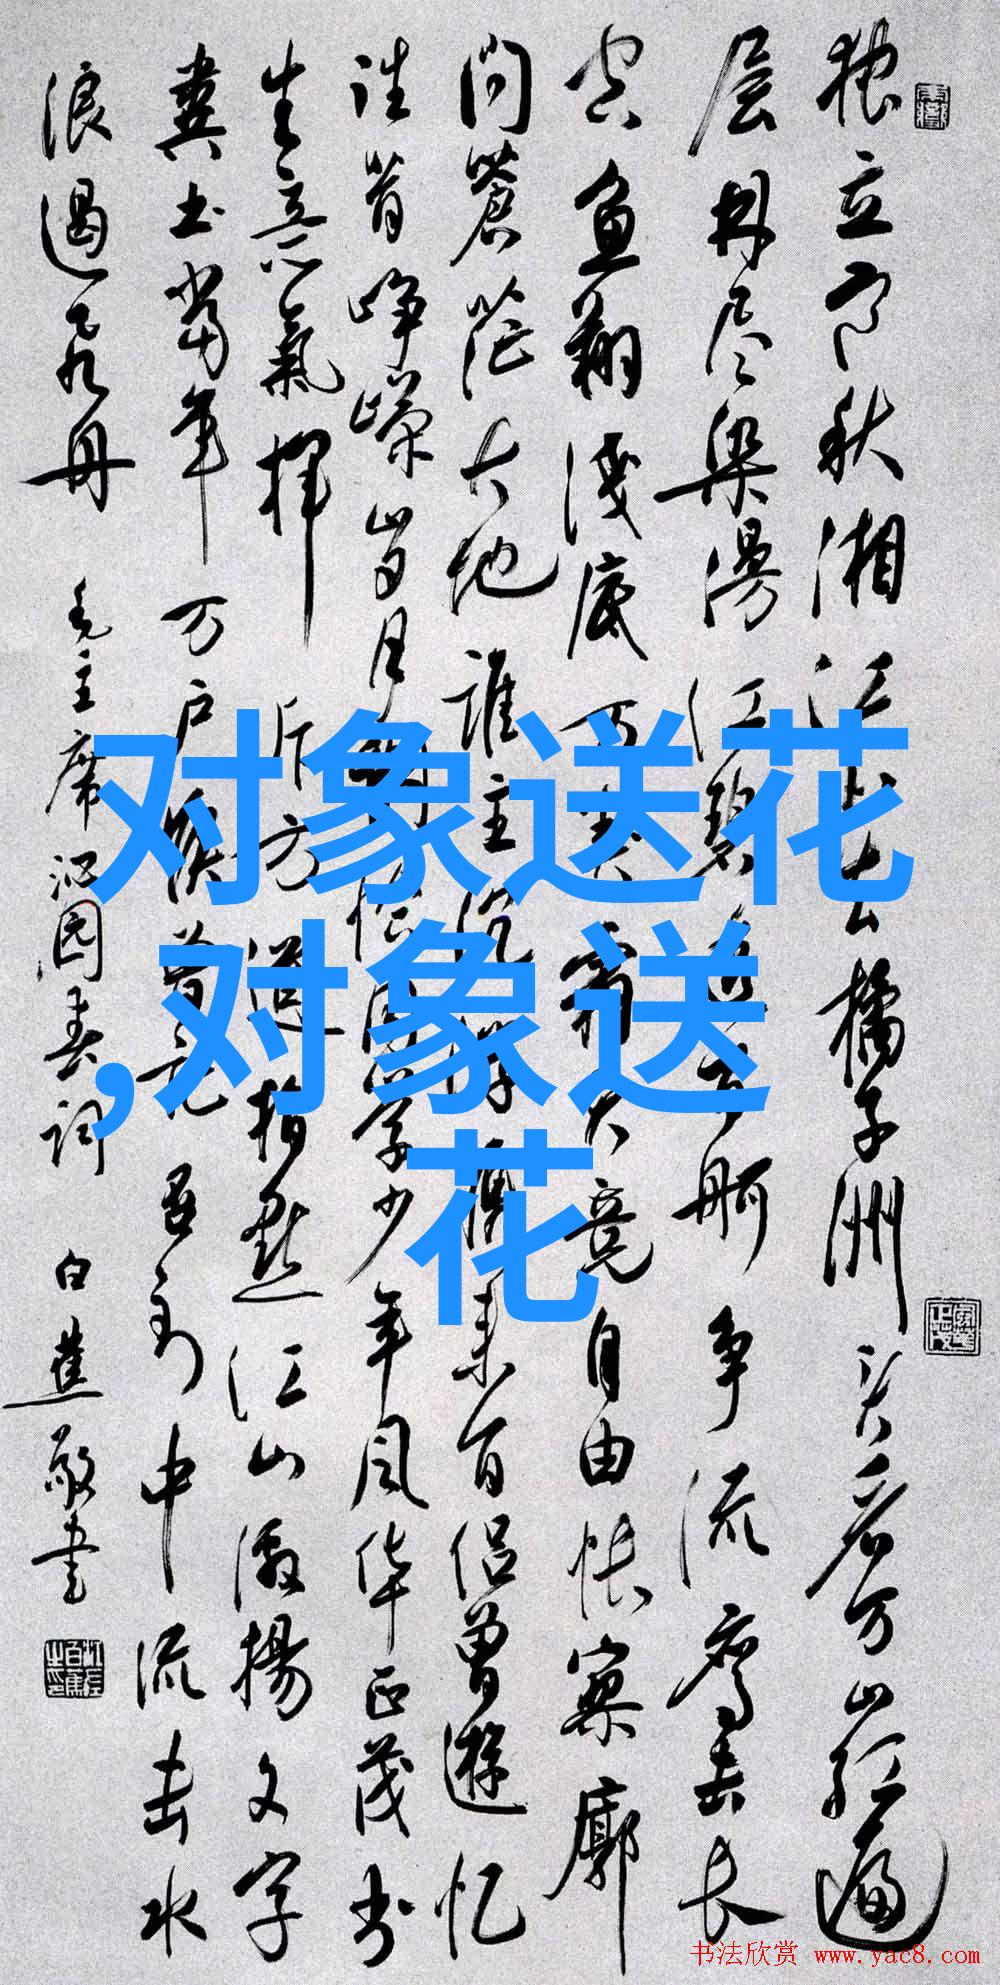 对象送花
,对象送
花
独立寒秋湘江北去橘子洲头看万山红遍
层林尽染漫江碧透百舸争流鹰击长
空鱼翔浅底万类霜天竞自由怅寥廓
问蒼茫大地誰主沉浮携来百侣曾遊忆
往昔峥嵘岁月稠恰同学少年风华正茂书
生意氣揮斥方遒指點江山激揚文字
粪土当年万户侯曾记否到中流击水
浪遏飞舟 毛主席沁园春词 白蕉敬书
书法欣赏 www.yac8.com